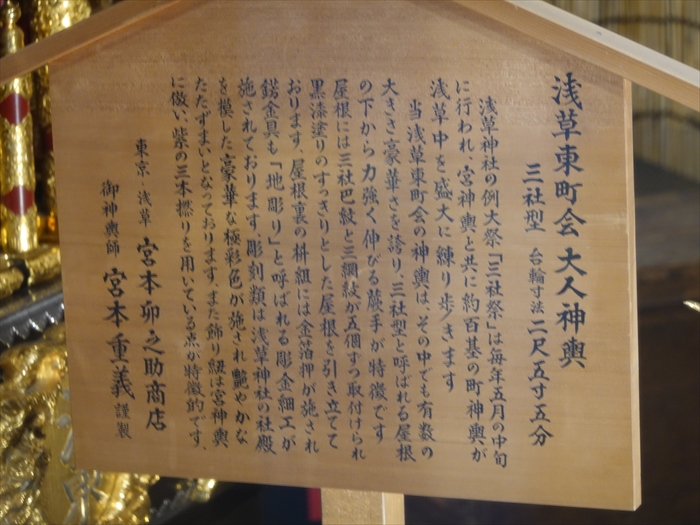 浅草東町会 大人神輿
三社型 台輪寸法 二尺五寸五分
浅草神社の例大祭「三社祭」は毎年五月の中旬
に行われ、宮神輿と共に約百基の町神輿が
浅草中を盛大に練り歩きます
当浅草東町会の神輿は、その中でも有数の
大きさ豪華さを誇り、三社型と呼ばれる屋根
の下から力強く伸びる蕨手が特徴です
屋根には三社巴紋と三網紋が五個ずつ取付けられ
黒漆塗りのすっきりとした屋根を引き立てて
おります、屋根裏の枡組には金箔押が施され
錺金具も「地彫り」と呼ばれる彫金細工が
施されております、彫刻類は浅草神社の社殿
を模した豪華な極彩色が施され艶やかな
たたずまいとなっております、また飾り紐は宮神輿
に倣い、紫の三本撚りを用いている点が特徴的です、
東京・浅草 宮本卯之助商店
御神輿師 宮本重義 謹製